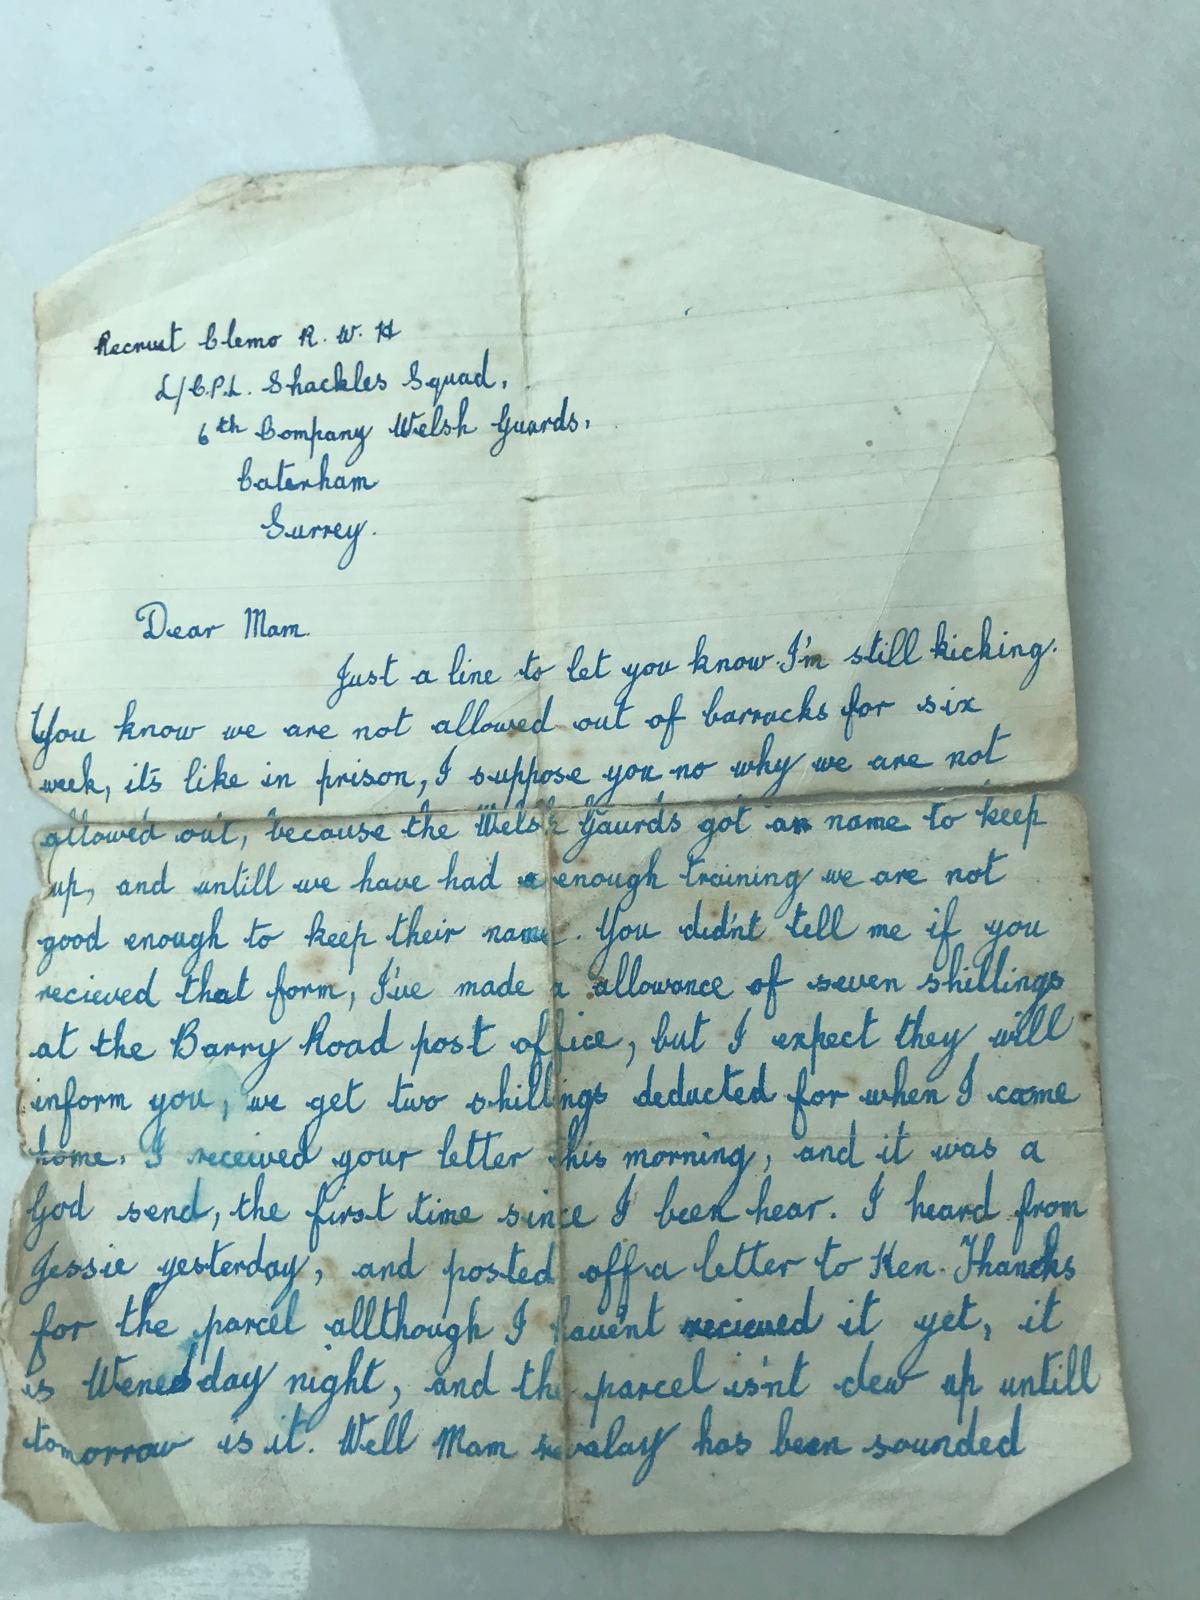 Recruit Clemo R. W. H
L/C.P.L. Shackles Squad,
6th Company Welsh Guards,
Caterham
Surrey.
Dear Mam.
Just a line to let you know I'm still kicking.
You know we are not allowed out of barracks for six
week, its like in prison, I suppose you no why we are not
allowed out, because the Welsh Gaurds got an name to keep
up, and untill we have had a enough training we are not
good enough to keep their name. You did'nt tell me if you
recieved that form, I've made a allowance of seven shillings
at the Barry Road post office, but I expect they will
inform you, we get two shillings deducted for when I come
home. I received your letter this morning, and it was a
God send, the first time since I been hear. I heard from
Jessie yesterday, and posted off a letter to Ken. Thancks
for the parcel allthough I haven't recieved it yet, it
is Wenedday night, and the parcel is'nt dew up untill
tomorrow is it. Well Mam revalay has been sounded